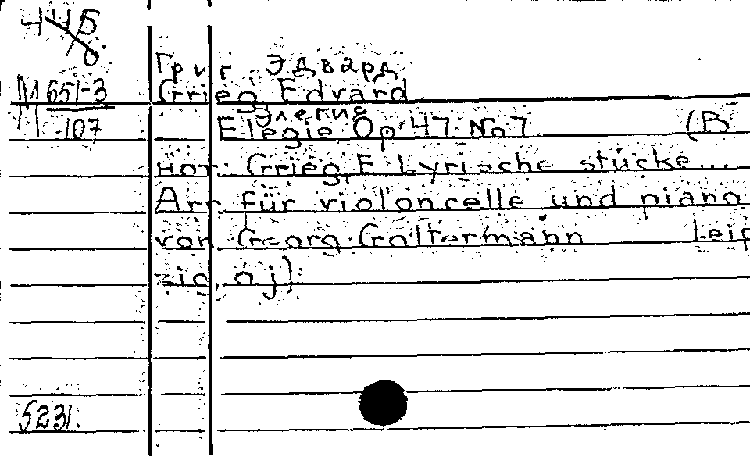 445
6
Григ Эдвард
М 651-3 Grieg Edvard
Элегия
107 Elegie Op 47 No 7 (В
нот: Grieg, E Lyrische stücke...
Arr für violoncelle und piano
von Georg Goltermann Leip
zig, o j).
5231.